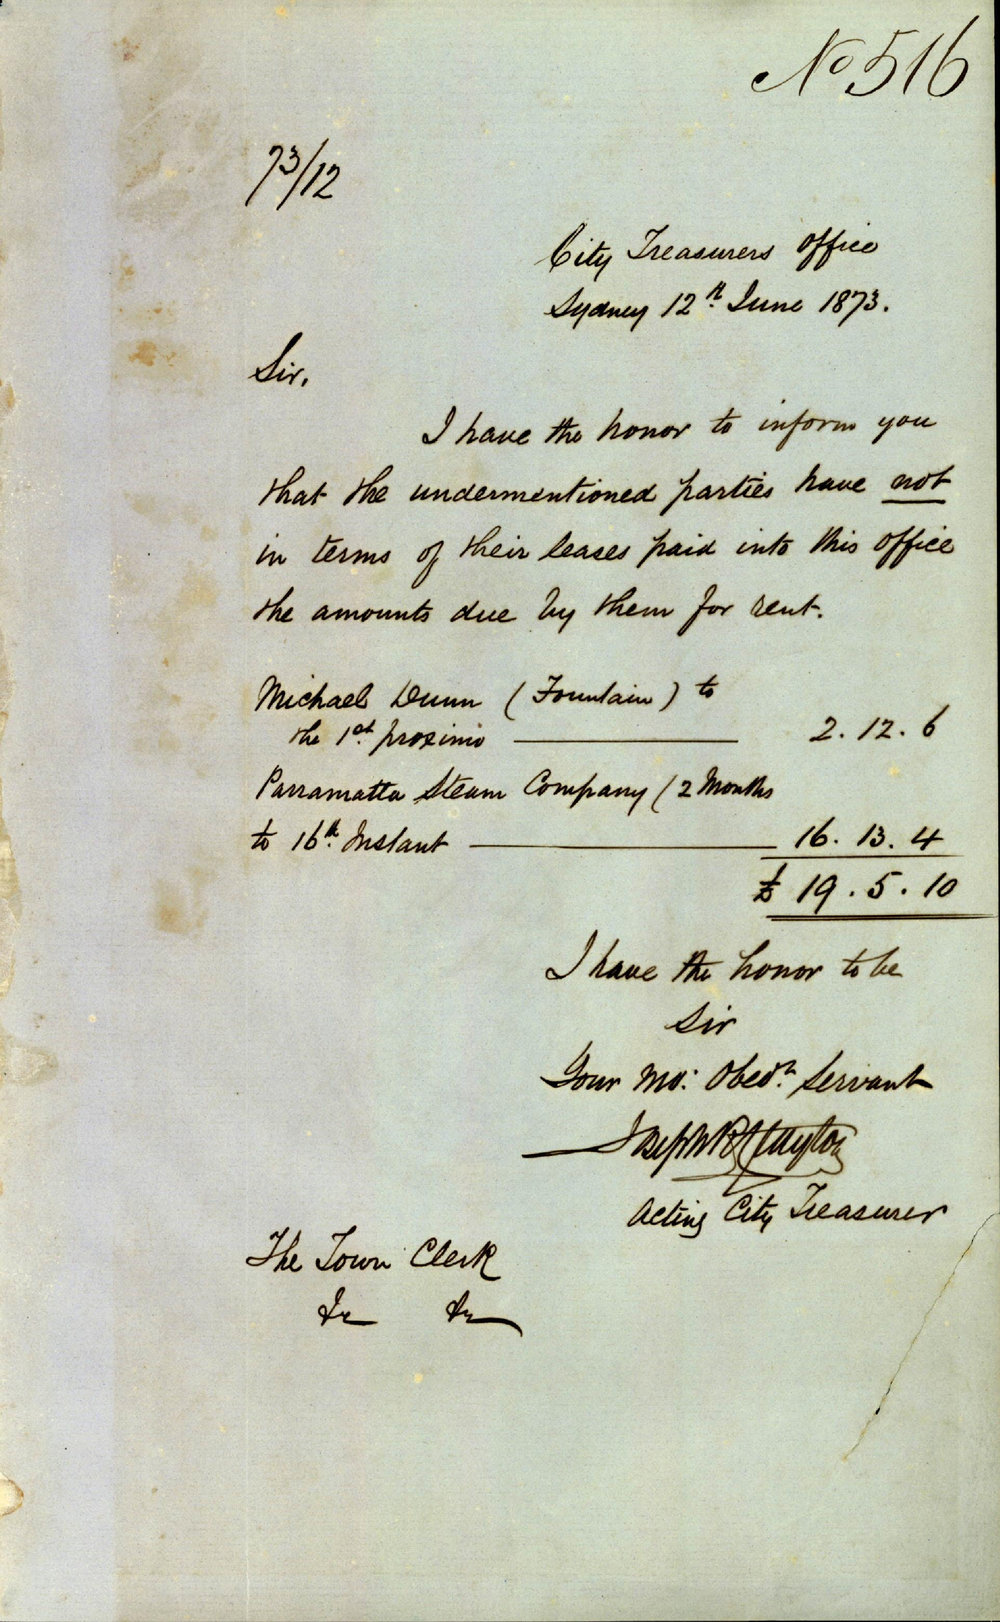 No 516
73/12
City Treasurers Office
Sydney 12th June 1873.
Sir,
I have the honor to inform you
that the undermentioned parties have not
in terms of their leases paid into this office
the amounts due by them for rent.
Michael Dunn (Fountain) to
the 1st proximo 2. 12. 6
Parramatta Steam Company (2 Months
to 16th Instant 16. 13. 4
£ 19. 5. 10
I have the honor to be
Sir
Your Mo: Obedt. Servant
Joseph
Acting City Treasurer
The Town Clerk
&c &c